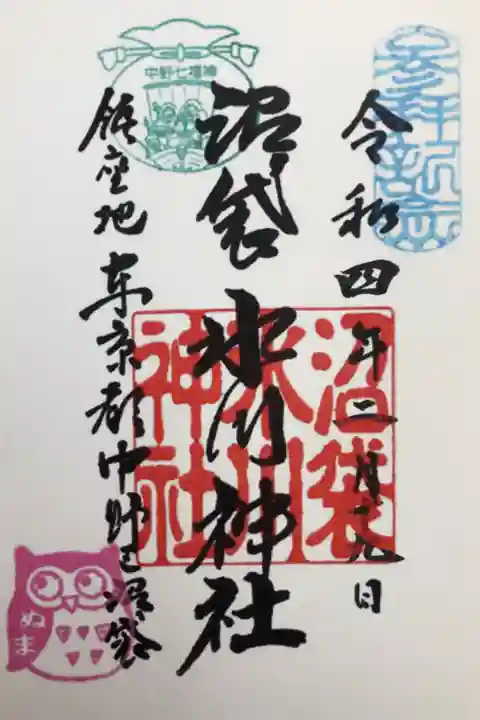 参拝記念
令和四年二月二九日
沼袋氷川神社
沼袋
氷川
神社
中野七福神
鎮座地 東京都中野区沼袋
ぬま